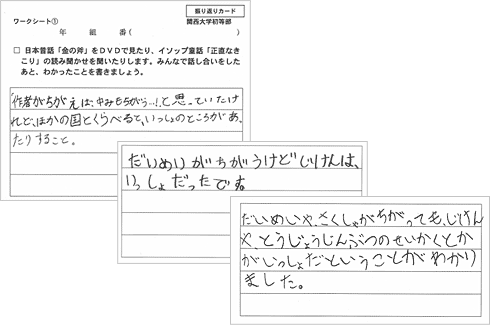 振り返りカード
ワークシート①
関西大学初等部
年 組 番( )
□ 日本昔話「金の斧」をDVDで見たり、イソップ童話「正直なき
こり」の読み聞かせを聞いたりします。みんなで話し合いをした
あと、わかったことを書きましょう。
作者がちがえば、中みもちがう…!と思っていたけ
れど、ほかの国とくらべると、いっしょのところがあっ
たりすること。
だいめいがちがうけどじけんは、
いっしょだったです。
だいめいや、さくしゃがちがっても、じけん
や、とうじょうじんぶつのせいかくとか
がいっしょだということがわかり
ました。